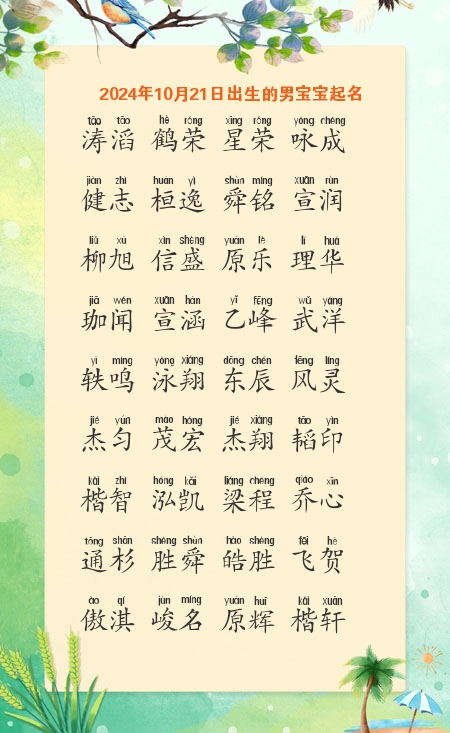 2024年10月21日出生的男宝宝起名
tāo tāo hè róng xīng róng yǒng chéng
涛滔 鹤荣 星荣 咏成
jiàn zhì huán yì shùn míng xuān rùn
健志 桓逸 舜铭 宣润
liǔ xù xìn shèng yuán lè lǐ huá
柳旭 信盛 原乐 理华
jiā wén xuān hán yǐ fēng wǔ yáng
珈闻 宣涵 乙峰 武洋
yì míng yǒng xiáng dōng chén fēng líng
轶鸣 泳翔 东辰 风灵
jié yún mào hóng jié xiáng tāo yìn
杰匀 茂宏 杰翔 韬印
kǎi zhì hóng kǎi liáng chéng qiáo xīn
楷智 泓凯 梁程 乔心
tōng shān shèng shùn hào shèng fēi hè
通杉 胜舜 皓胜 飞贺
ào qí jùn míng yuán huī kǎi xuān
傲淇 峻名 原辉 楷轩